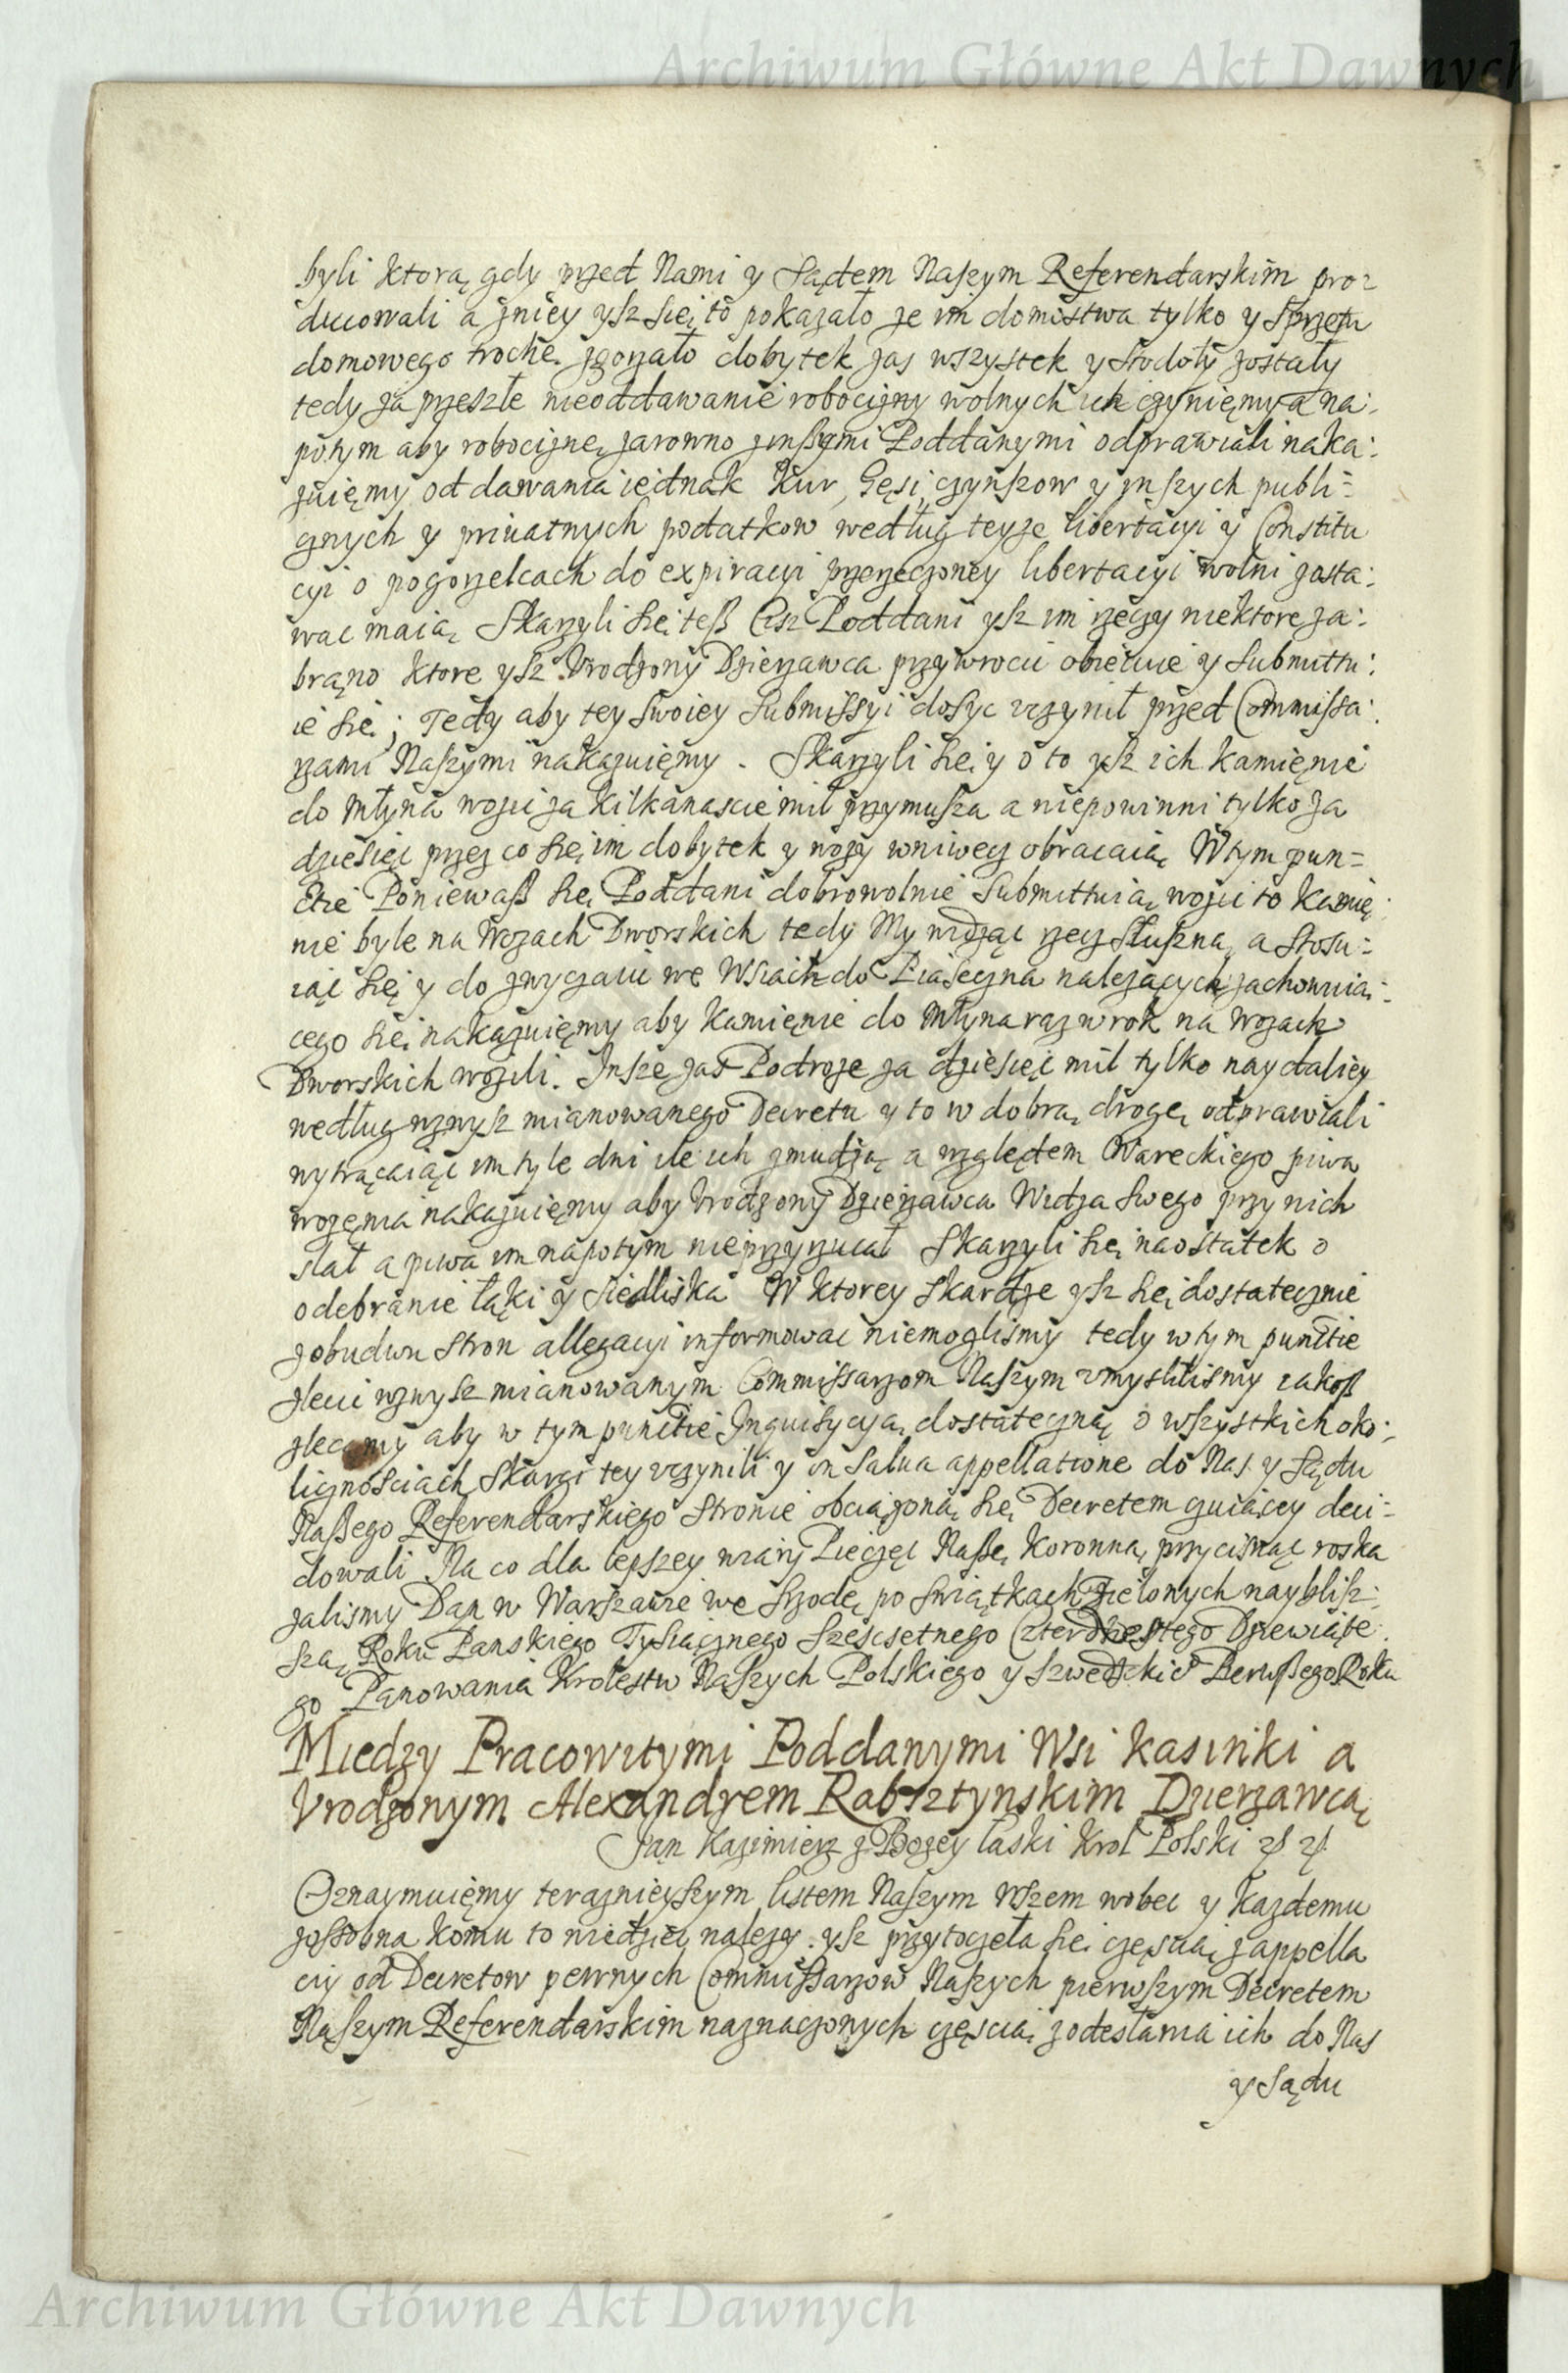 Archiwum Główne Akt Dawnych
byli ktorą gdy przed Nami y Sądem Naszym Referendarskim pro:
ducowali a zniey ysz się to pokazało ze im domistwa tylko y Sprzętu
domowego trochę zgorzało dobytek zas wszystek y stodoły zostały
tedy za przeszłe nieoddawanie robocizny wolnych ich czyniemy a na:
potym aby robociznę zarowno zinszymi Poddanymi odprawiali naka:
zuięmy od dawania iednak Kur, Gęsi, czynszow y inszych publi=
cznych y priuatnych podatkow według teyze libertacyi y Constitu
cyi o pogorzelcach do expiracyi przerzeczoney libertacyi wolni zosta:
wac maią. Skarzyli się tesz Cisz Poddani ysz im rzeczy niektore za:
brano ktore ysz Vrodzony Dzierzawca przywrocic obiecuie y Submittu:
ie się; Tedy aby tey swoiey Submissyi dosyc vczynił przed Commissa:
rzami Naszymi nakazuięmy. Skarzyli się y o to ysz ich kamięnie
do Młyna wozic za kilkanascie mil przymusza a niepowinni tylko za
dziesięc przez co się im dobytek y wozy wniwecz obracaią. W tym pun=
ctie Poniewasz się Poddani dobrowolnie Submittuią wozic to kamię
nie byle na Wozach Dworskich tedy My widząc rzecz słuszną, a stosu:
iąc się y do zwyczaiu we Wsiach do Piaseczna nalezących zachowuią:
cego się nakazuięmy aby kamięnie do Młyna raz w rok na wozach
Dworskich wozili. Insze zas Podroze za dziesięc mil tylko naydaliey
według wzwysz mianowanego Decretu y to w dobrą drogę odprawiali
wytrącaiąc im tyle dni ile ich zmudzą a względem Wareckiego piwa
wozęnia nakazuięmy aby Vrodzony Dzierzawca Widza swego przy nich
słał a piwa im napotym nieprzyrzucał Skarzyli się naostatek o
odebranie łąki y siedliska W ktorey skardze ysz się dostatecznie
zobudwu stron allegacyi informowac niemoglismy tedy w tym punctie
zlecic wzwysz mianowanym Commissarzom Naszym vmyslilismy iakosz
zlecamy aby w tym punctie Inquisycyą dostateczną o wszystkich oko:
licznosciach skargi tey vczynili y in salua appellatione do Nas y Sądu
Naszego Referendarskiego stronie obciązoną się Decretem czuiącey deci=
dowali Na co dla lepszey wiary Pieczęc Naszę Koronną przycisnąc roska
zalismy Dan w Warszawie we Srzodę po Swiątkach Zielonych nayblisz:
szą Roku Panskiego Tysiącznego Szescsetnego Czterdziestego Dziewiąte:
go Panowania Krolestw Naszych Polskiego y Szwedzkie Pierwszego Roku
Miedzy Pracowitymi Poddanymi Wsi Kasinki a
Vrodzonym Alexandrem Rabsztynskim Dzierzawcą
Jan Kazimierz z Bozey łaski Krol Polski
Oznaymuięmy terazniejszym listem Naszym Wszem wobec y kazdemu
zossobna komu to wiedziec nalezy. ysz przytoczeła się częscią z appella
cij od Decretow pewnych Commissarzow Naszych pierwszym Decretem
Naszym Referendarskim naznaczonych częscią z odesłania ich do Nas
y Sądu
Archiwum Główne Akt Dawnych